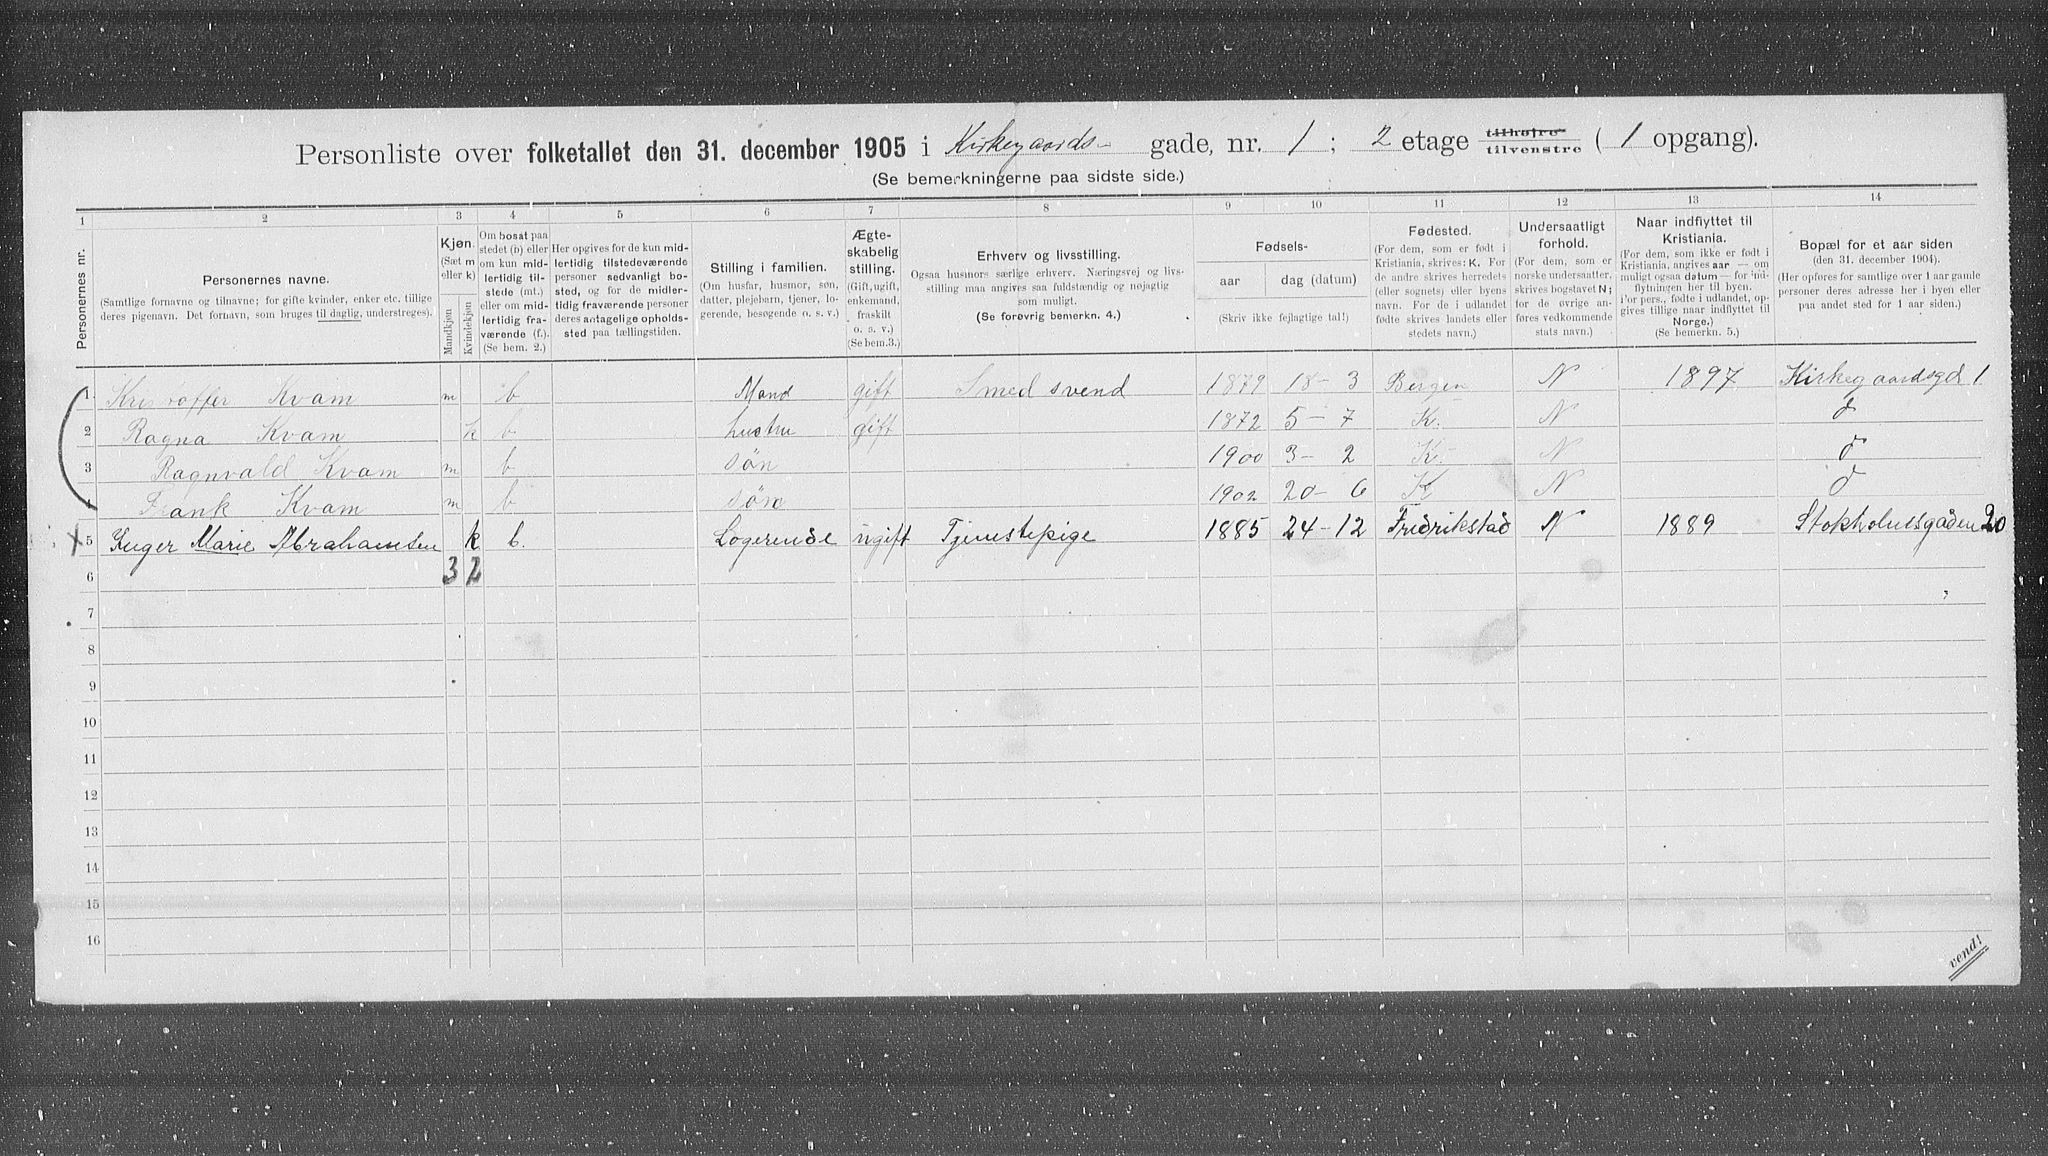 Personliste over folketallet den 31. december 1905 i Kirkegaards- gade, nr. 1 ; 2 etage tilhøjre tilvenstre ( 1 opgang).
(Se bemerkningerne paa sidste side.)
1 2 3 4 5 6 7 8 9 10 11 12 13 14
Personernes nr.
Personernes navne.
(Samtlige fornavne og tilnavne; for gifte kvinder, enker etc. tillige
deres pigenavn. Det fornavn, som bruges til daglig, understreges).
Kjøn.
(Sæt m
eller k)
Mandkjøn
Kvindekjøn
Om bosat paa
stedet (b) eller
om kun mid-
lertidig til-
stede (mt.)
eller om mid-
lertidig fra-
værende (f.).
(Se bem. 2.)
Her opgives for de kun mid-
lertidig tilstedeværende
personer sedvanligt bo-
sted, og for de midler-
tidig fraværende personer
deres antagelige opholds-
sted paa tællingstiden.
Stilling i familien.
(Om husfar, husmor, søn,
datter, plejebarn, tjener, lo-
gerende, besøgende o. s. v.)
Ægte-
skabelig
stilling.
(Gift, ugift,
enkemand,
fraskilt
o. s. v.)
(Se bem.3.)
Erhverv og livsstilling.
Ogsaa husmors særlige erhverv. Næringsvej og livs-
stilling maa angives saa fuldstændig og nøjagtig
som muligt.
(Se forøvrig bemerkn. 4.)
Fødsels-
aar dag (datum)
(Skriv ikke fejlagtige tal!)
Fødested.
(For dem, som er født i
Kristiania, skrives: K. For
de andre skrives herredets
(eller sognets) eller byens
navn. For de i udlandet
fødte skrives landets eller
stedets navn.)
Undersaatligt
forhold.
(For dem, som er
norske undersaatter,
skrives bogstavet N;
for de øvrige an-
føres vedkommende
stats navn.)
Naar indflyttet til
Kristiania.
(For dem, som ikke er født i
Kristiania, angives aar — om
muligt ogsaa datum — for ind-
flytningen her til byen.
For pers., fødte i udlandet, op-
gives tillige naar indflyttet til
Norge.)
(Se bemerkn. 5.)
Bopæl for et aar siden
(den 31. december 1904).
(Her opføres for samtlige over 1 aar gamle
personer deres adresse her i byen eller
paa andet sted for 1 aar siden.)
1 Kristoffer Kvam m b Mand gift Smedsvend 1879 18-3 Bergen N 1897 Kirkegaardsgd 1
2 Ragna Kvam k b hustru gift 1872 5-7 K. N d
3 Ragnvald Kvam m b søn 1900 3-2 K. N d
4 Frank Kvam m b søn 1902 20-6 K N d
x 5 Inger Marie Abrahamsen k b. Logerende ugift Tjenestepige 1885 24-12 Fridrikstad N 1889 Stokholmsgaden 20
6 3 2
7
8
9
10
11
12
13
14
15
16
vend!